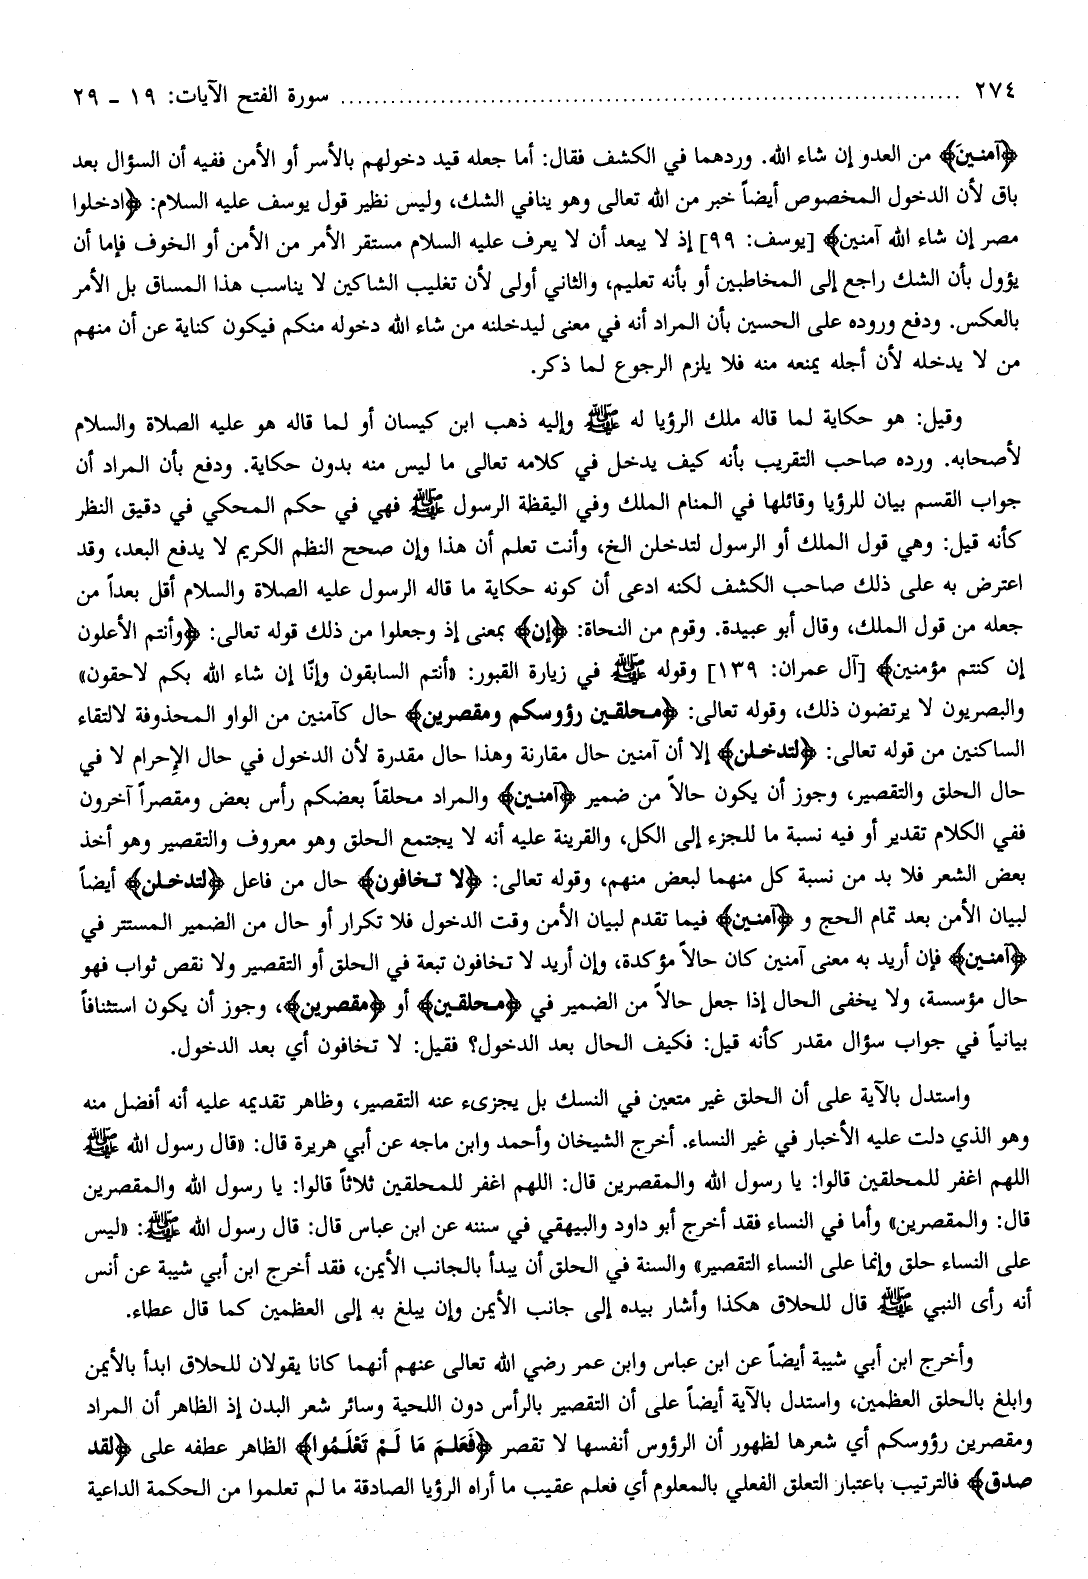 ٢٧٤ ........................................................................ سورة الفتح الآيات: ١٩ ـ ٢٩
﴿آمنينَ﴾ من العدو إن شاء الله. وردهما في الكشف فقال: أما جعله قيد دخولهم بالأسر أو الأمن ففيه أن السؤال بعد
باق لأن الدخول المخصوص أيضاً خبر من الله تعالى وهو ينافي الشك، وليس نظير قول يوسف عليه السلام: ﴿ادخلوا
مصر إن شاء الله آمنين﴾ [يوسف: ٩٩] إذ لا يبعد أن لا يعرف عليه السلام مستقر الأمر من الأمن أو الخوف فإما أن
يؤول بأن الشك راجع إلى المخاطبين أو بأنه تعليم، والثاني أولى لأن تغليب الشاكين لا يناسب هذا المساق بل الأمر
بالعكس. ودفع وروده على الحسين بأن المراد أنه في معنى ليدخلنه من شاء الله دخوله منكم فيكون كناية عن أن منهم
من لا يدخله لأن أجله يمنعه منه فلا يلزم الرجوع لما ذكر.
وقيل: هو حكاية لما قاله ملك الرؤيا له ﷺ وإليه ذهب ابن كيسان أو لما قاله هو عليه الصلاة والسلام
لأصحابه. ورده صاحب التقريب بأنه كيف يدخل في كلامه تعالى ما ليس منه بدون حكاية. ودفع بأن المراد أن
جواب القسم بيان للرؤيا وقائلها في المنام الملك وفي اليقظة الرسول ﷺ فهي في حكم المحكي في دقيق النظر
كأنه قيل: وهي قول الملك أو الرسول لتدخلن الخ، وأنت تعلم أن هذا وإن صحح النظم الكريم لا يدفع البعد، وقد
اعترض به على ذلك صاحب الكشف لكنه ادعى أن كونه حكاية ما قاله الرسول عليه الصلاة والسلام أقل بعداً من
جعله من قول الملك، وقال أبو عبيدة. وقوم من النحاة: ﴿إن﴾ بمعنى إذ وجعلوا من ذلك قوله تعالى: ﴿وأنتم الأعلون
إن كنتم مؤمنين﴾ [آل عمران: ١٣٩] وقوله ﷺ في زيارة القبور: «أنتم السابقون وإنّا إن شاء الله بكم لاحقون»
والبصريون لا يرتضون ذلك، وقوله تعالى: ﴿محلقين رؤوسكم ومقصرين﴾ حال كآمنين من الواو المحذوفة لالتقاء
الساكنين من قوله تعالى: ﴿لتدخلن﴾ إلا أن آمنين حال مقارنة وهذا حال مقدرة لأن الدخول في حال الإحرام لا في
حال الحلق والتقصير، وجوز أن يكون حالاً من ضمير ﴿آمنين﴾ والمراد محلقاً بعضكم رأس بعض ومقصراً آخرون
ففي الكلام تقدير أو فيه نسبة ما للجزء إلى الكل، والقرينة عليه أنه لا يجتمع الحلق وهو معروف والتقصير وهو أخذ
بعض الشعر فلا بد من نسبة كل منهما لبعض منهم، وقوله تعالى: ﴿لا تخافون﴾ حال من فاعل ﴿لتدخلن﴾ أيضاً
لبيان الأمن بعد تمام الحج و ﴿آمنين﴾ فيما تقدم لبيان الأمن وقت الدخول فلا تكرار أو حال من الضمير المستتر في
﴿آمنين﴾ فإن أريد به معنى آمنين كان حالاً مؤكدة، وإن أريد لا تخافون تبعة في الحلق أو التقصير ولا نقص ثواب فهو
حال مؤسسة، ولا يخفى الحال إذا جعل حالاً من الضمير في ﴿محلقين﴾ أو ﴿مقصرين﴾، وجوز أن يكون استئنافاً
بيانياً في جواب سؤال مقدر كأنه قيل: فكيف الحال بعد الدخول؟ فقيل: لا تخافون أي بعد الدخول.
واستدل بالآية على أن الحلق غير متعين في النسك بل يجزىء عنه التقصير، وظاهر تقديمه عليه أنه أفضل منه
وهو الذي دلت عليه الأخبار في غير النساء. أخرج الشيخان وأحمد وابن ماجه عن أبي هريرة قال: «قال رسول الله ﷺ
اللهم اغفر للمحلقين قالوا: يا رسول الله والمقصرين قال: اللهم اغفر للمحلقين ثلاثاً قالوا: يا رسول الله والمقصرين
قال: والمقصرين» وأما في النساء فقد أخرج أبو داود والبيهقي في سننه عن ابن عباس قال: قال رسول الله ﷺ: «ليس
على النساء حلق وإنما على النساء التقصير» والسنة في الحلق أن يبدأ بالجانب الأيمن، فقد أخرج ابن أبي شيبة عن أنس
أنه رأى النبي ﷺ قال للحلاق هكذا وأشار بيده إلى جانب الأيمن وإن يبلغ به إلى العظمين كما قال عطاء.
وأخرج ابن أبي شيبة أيضاً عن ابن عباس وابن عمر رضي الله تعالى عنهم أنهما كانا يقولان للحلاق ابدأ بالأيمن
وابلغ بالحلق العظمين، واستدل بالآية أيضاً على أن التقصير بالرأس دون اللحية وسائر شعر البدن إذ الظاهر أن المراد
ومقصرين رؤوسكم أي شعرها لظهور أن الرؤوس أنفسها لا تقصر ﴿فَعَلمَ مَا لَمْ تَعْلَمُوا﴾ الظاهر عطفه على ﴿لقد
صدق﴾ فالترتيب باعتبار التعلق الفعلي بالمعلوم أي فعلم عقيب ما أراه الرؤيا الصادقة ما لم تعلموا من الحكمة الداعية